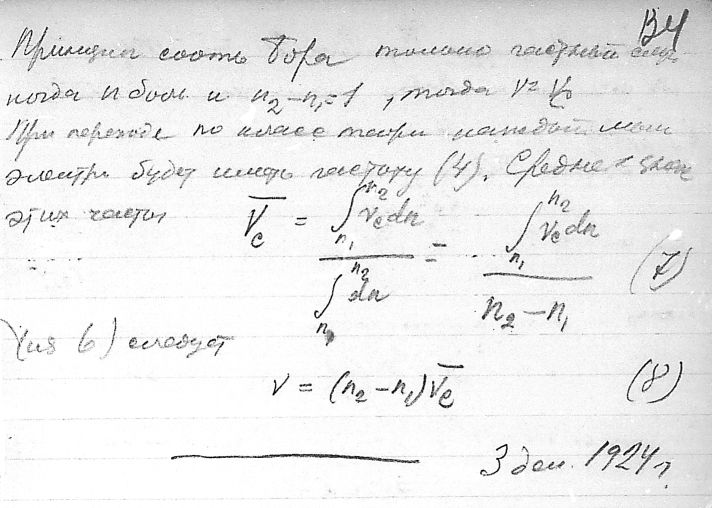 В4
Принцип соотв Бора только частный случ
когда n бол. и n₂–n₁=1, тогда ν=ν_c
При переходе по класс теори каждый мом
электр будет иметь частоту (4). Среднее < знач
этих часты ν̄_c = ∫_{n₁}^{n₂} ν_c dn / ∫_{n₁}^{n₂} dn = ∫_{n₁}^{n₂} ν_c dn / (n₂ – n₁) (7)
(из 6) следует
ν = (n₂–n₁) ν̄_c (8)
3 дек. 1924 г.